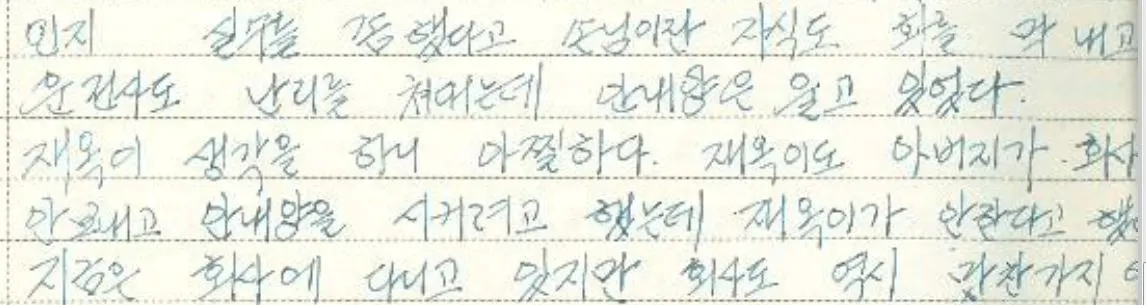 인지 실수를 좀 했다고 손님이란 자식도 화를 막 내고
운전사도 난리를 쳐이는데 안내양은 울고 있었다.
재옥이 생각을 하니 아찔하다. 재옥이도 아버지가 회사
안보내고 안내양을 시키려고 했는데 재옥이가 안한다고 했
지금은 회사에 다니고 있지만 회사도 역시 마찬가지